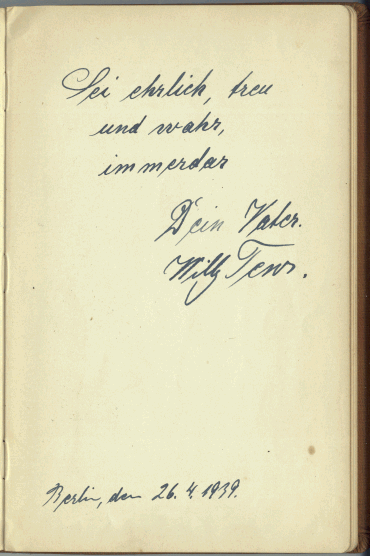 Sei ehrlich, treu
und wahr,
immerdar
Dein Vater.
Willy Tews.
Berlin, den 26. 4. 1939.